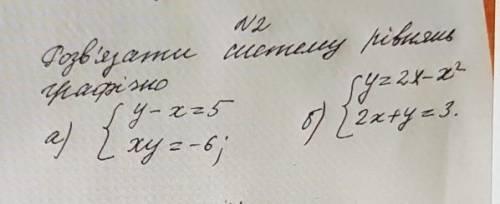 N2
Розв'язати систему рівнянь
графічно
а) { y - x = 5
xy = -6;
б) { y = 2x - x²
2x + y = 3.